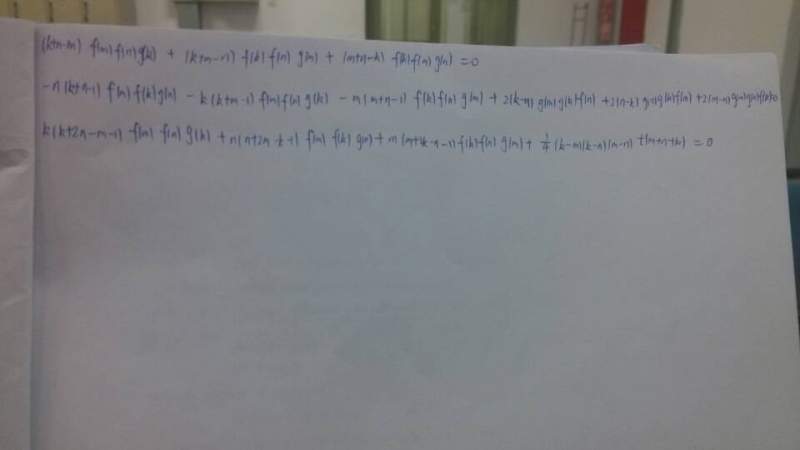 (k+n-m) f(m) f(n) g(k) + (k+m-n) f(k) f(n) g(m) + (m+n-k) f(k) f(n) g(n) = 0
-n(k+n-1) f(m) f(k) g(n) - k(k+m-1) f(m) f(n) g(k) - m(m+n-1) f(k) f(n) g(m) + 2(k-n) g(m) g(k) f(n) + 2(n-k) g(n) g(k) f(n) + 2(m-n) g(m) g(n) f(k) = 0
k(k+2n-m-1) f(m) f(n) g(k) + n(n+2m-k-1) f(m) f(k) g(n) + m(m+2k-n-1) f(k) f(n) g(m) + 1/4 (k-m)(k-n)(m-n) t(m+n+k) = 0